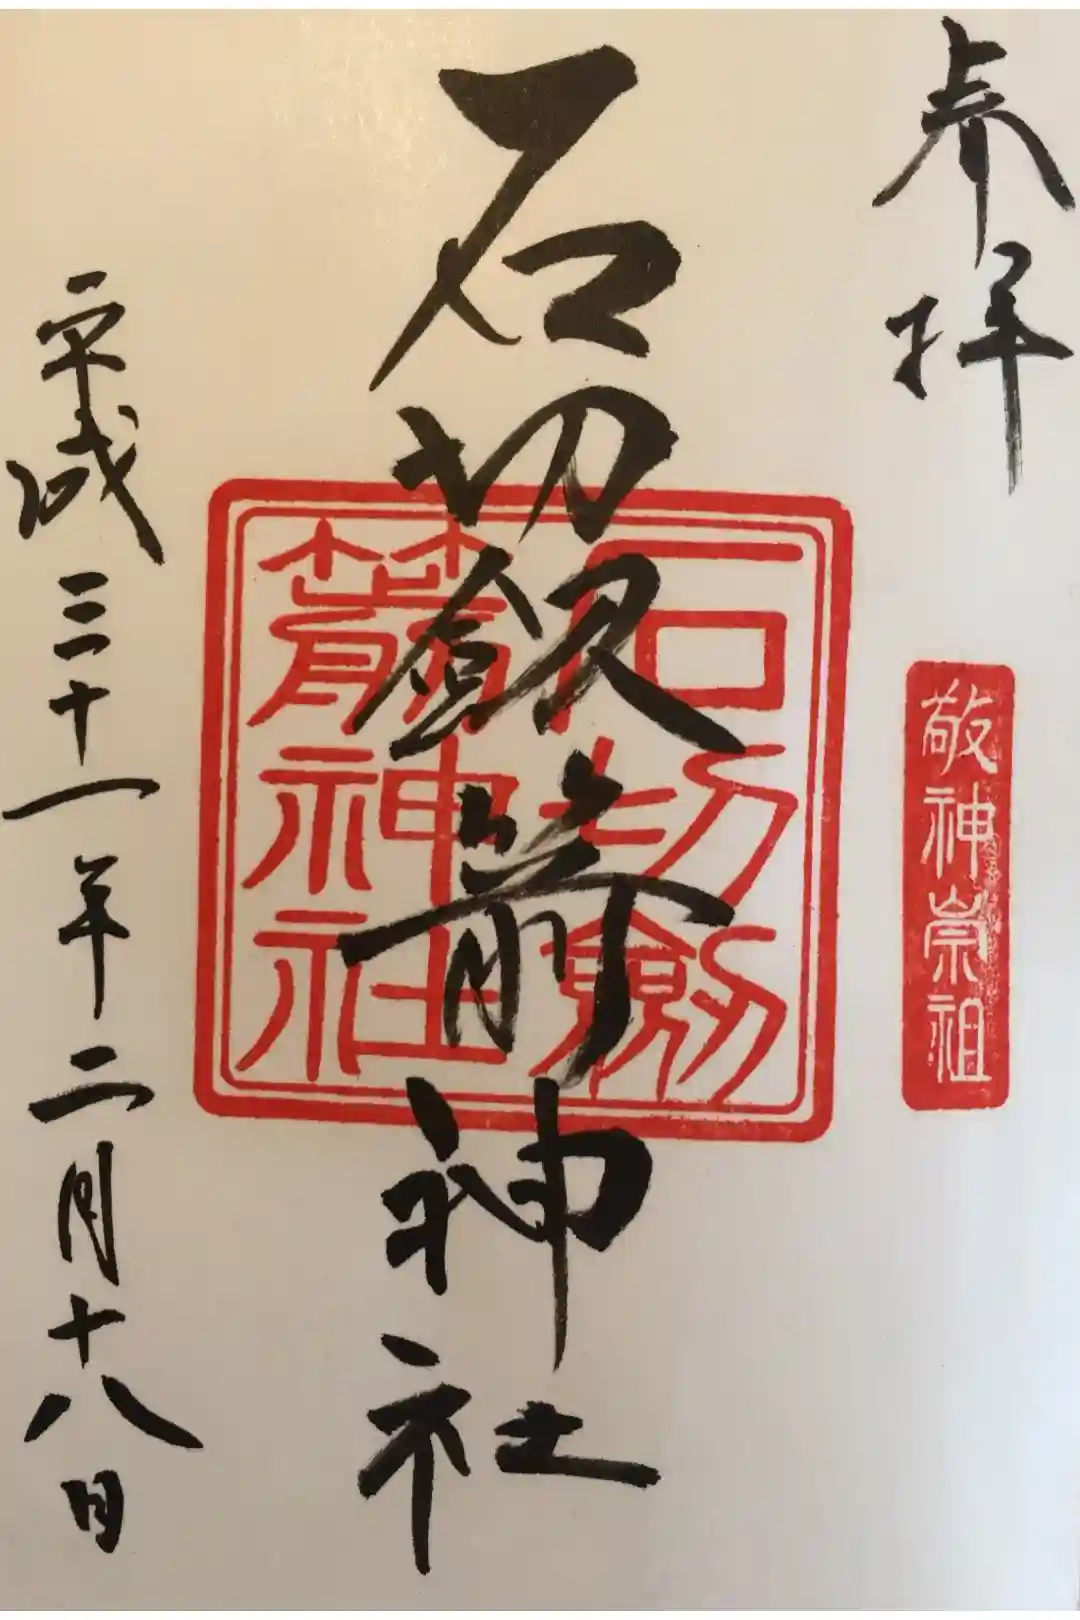 奉拝
敬神崇祖
石切剱箭神社
石切劔
箭神社
平成三十一年二月十八日